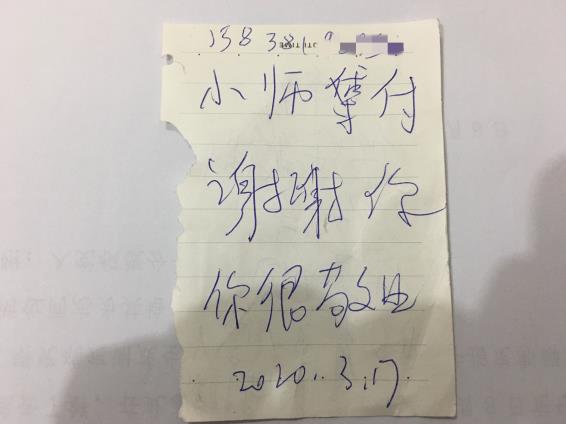 138 381
小师付
谢谢你
你很敬业
2020..3.17.